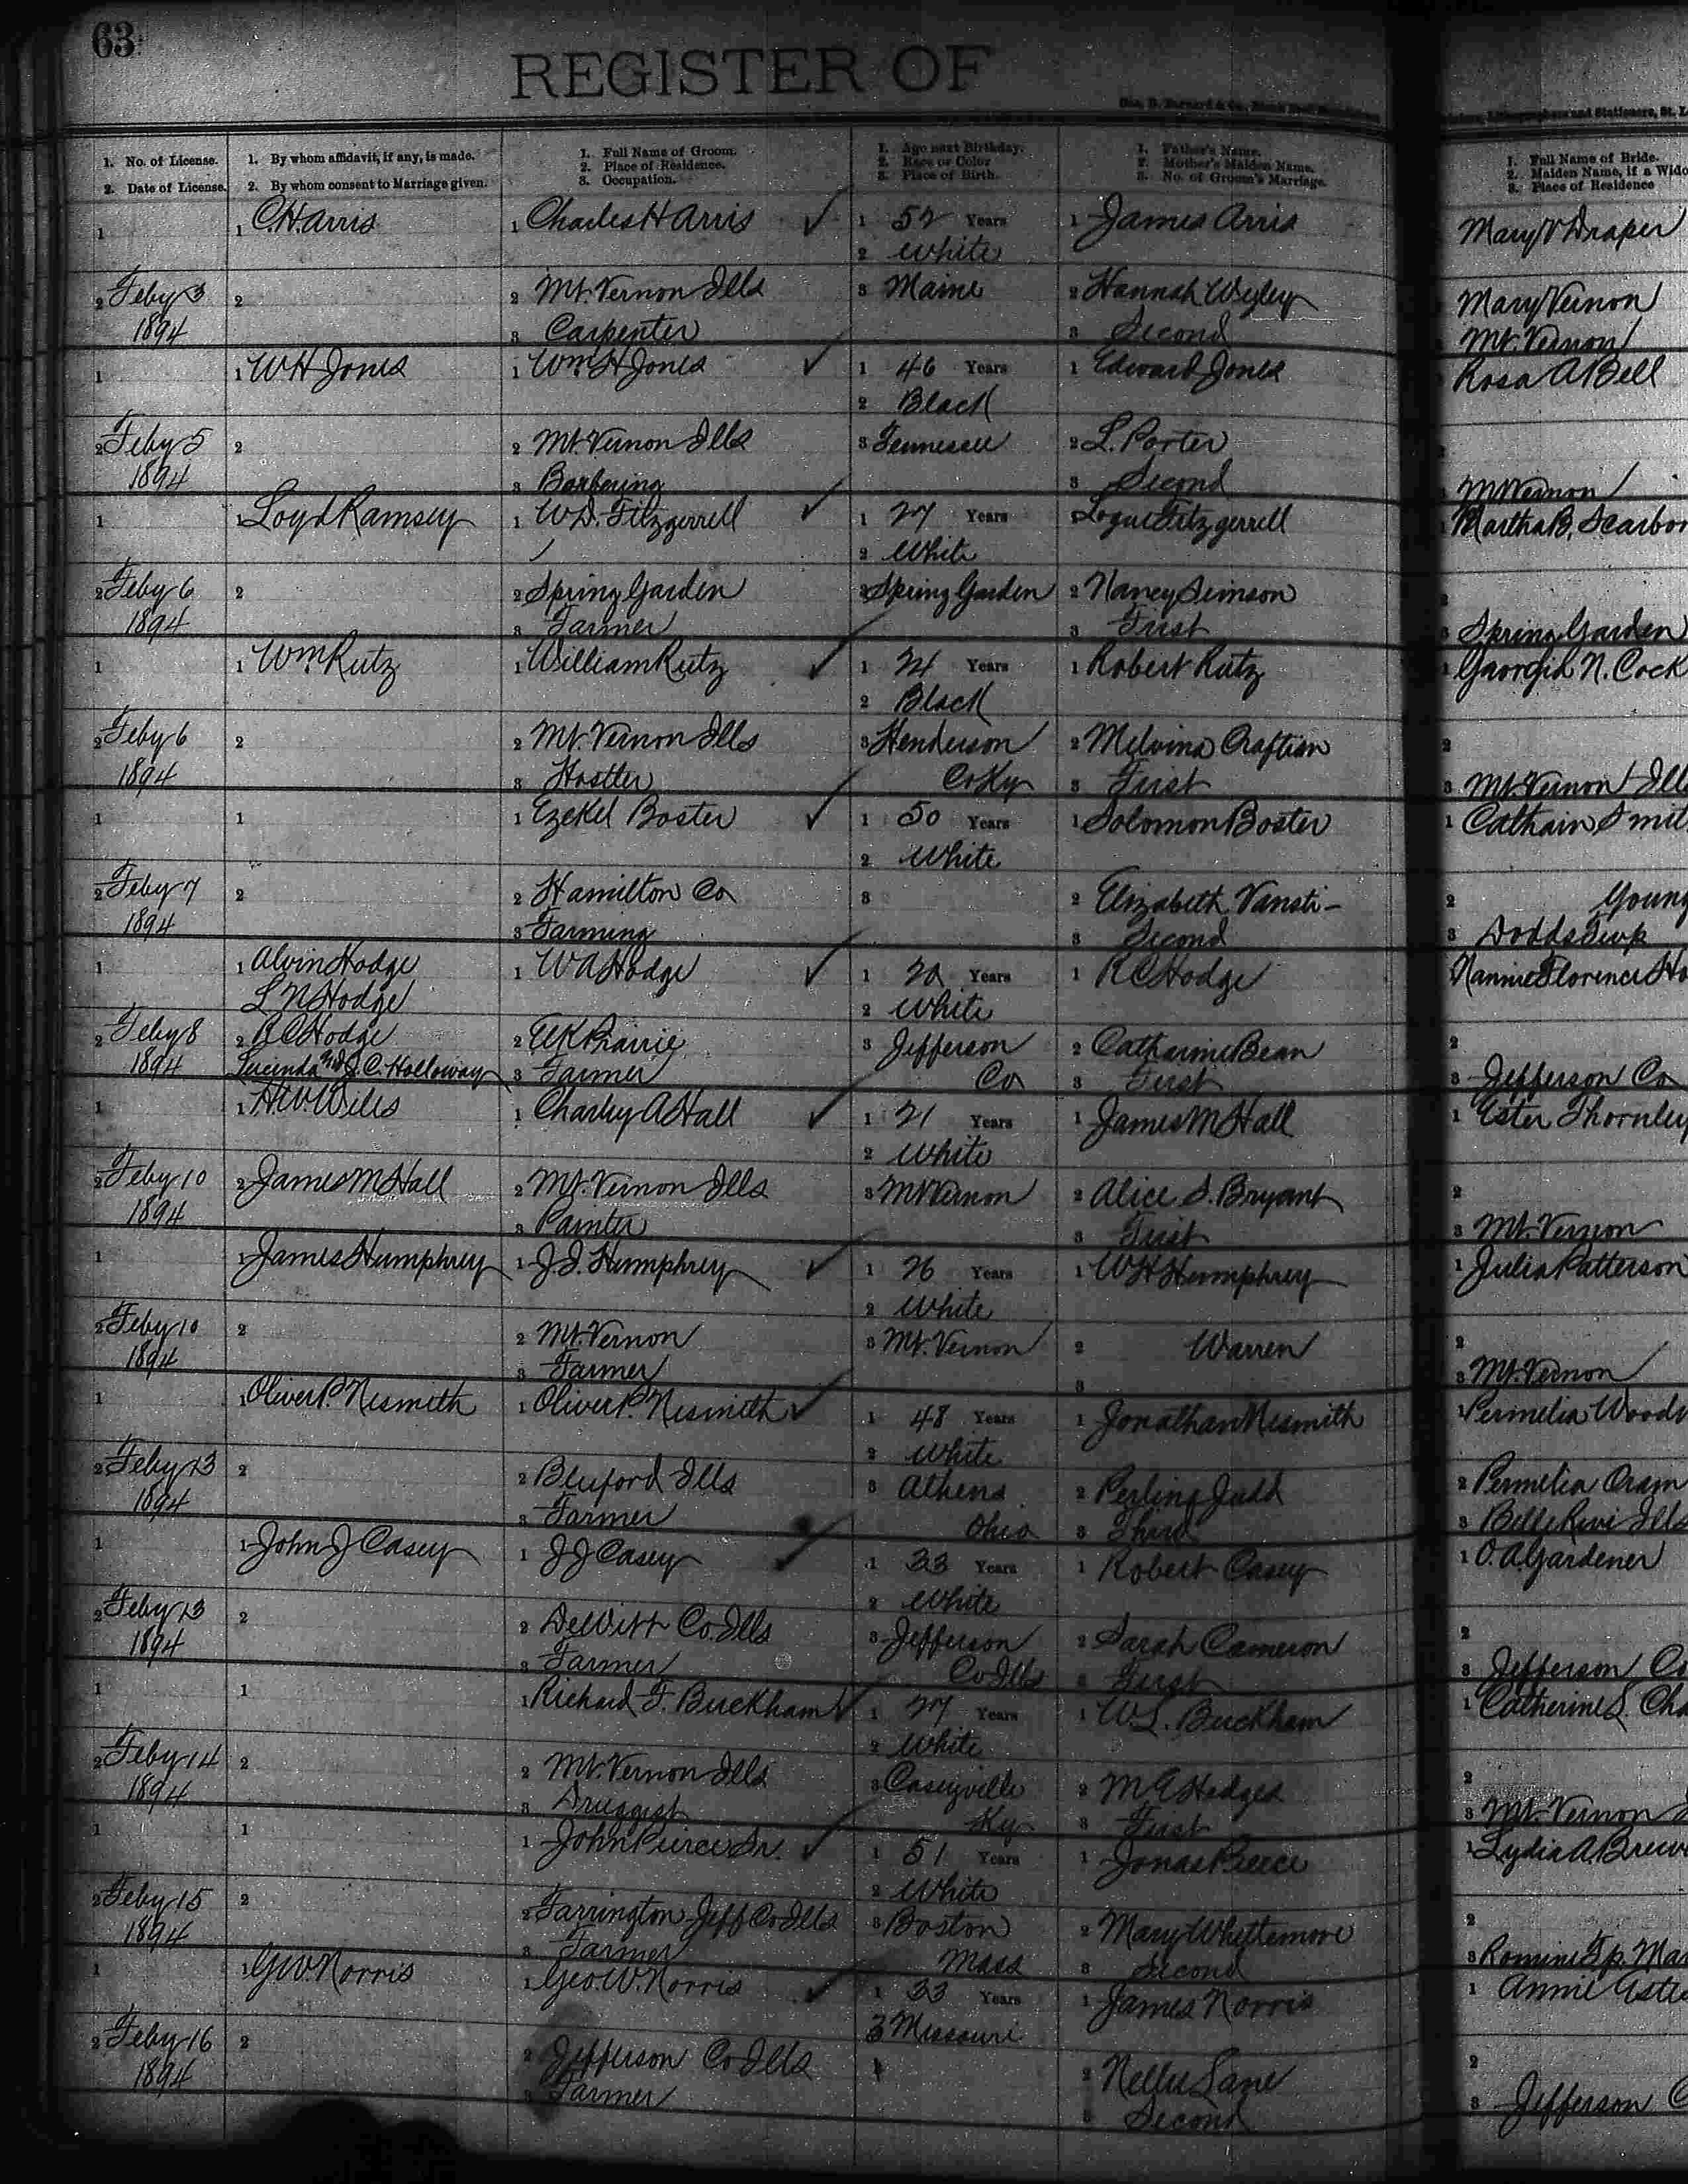 63
REGISTER OF
1. No. of License.
2. Date of License.
1. By whom affidavit, if any, is made.
2. By whom consent to Marriage given.
1. Full Name of Groom.
2. Place of Residence.
3. Occupation.
1. Age next Birthday.
2. Race or Color
3. Place of Birth.
1. Father's Name.
2. Mother's Maiden Name.
3. No. of Groom's Marriage.
1. Full Name of Bride.
2. Maiden Name, if a Wido
3. Place of Residence
1 1 C.H. Arris 1 Charles H Arris ✓ 1 52 Years 1 James Arris Mary V Draper
2 White
2 Feby 3 2 2 Mt. Vernon Ills 3 Maine 2 Hannah Wigley Mary Vernon
1894 3 Carpenter 3 Second Mt. Vernon
1 1 W H Jones 1 Wm H Jones ✓ 1 46 Years 1 Edward Jones Rosa A Bell
2 Black
2 Feby 5 2 2 Mt. Vernon Ills 3 Tennessee 2 L. Porter 2
1894 3 Barbering 3 Second 3 Mt Vernon
1 1 Loyd Ramsey 1 W.D. Fitzgerrell ✓ 1 27 Years 1 Logue Fitzgerrell 1 Martha B. Scarbor
2 White
2 Feby 6 2 2 Spring Garden 3 Spring Garden 2 Nancy Simson 2
1894 3 Farmer 3 First 3 Spring Garden
1 1 Wm Rutz 1 William Rutz ✓ 1 24 Years 1 Robert Rutz 1 Gaorgia N. Cock
2 Black
2 Feby 6 2 2 Mt. Vernon Ills 3 Henderson 2 Melvina Craftion 2
1894 3 Hostler Co Ky 3 First 3 Mt Vernon Ills
1 1 1 Ezekel Boster ✓ 1 50 Years 1 Solomon Boster 1 Cathain Smit
2 White
2 Feby 7 2 2 Hamilton Co 3 2 Elizabeth Vansti- 2 Young
1894 3 Farming 3 Second 3 Dodds Twp
1 1 Alvin Hodge 1 W A Hodge ✓ 1 20 Years 1 R C Hodge Nannie Florence Ho
L N Hodge 2 White
2 Feby 8 2 R C Hodge 2 Elk Prairie 3 Jefferson 2 Catharine Bean 2
1894 Lucinda and J. C. Holloway 3 Farmer Co 3 First 3 Jefferson Co
1 1 H.W. Wiles 1 Charley A Hall ✓ 1 21 Years 1 James M Hall 1 Ester Thornley
2 White
2 Feby 10 2 James M Hall 2 Mt. Vernon Ills 3 Mt Vernon 2 Alice S. Bryant 2
1894 3 Painter 3 First 3 Mt. Vernon
1 1 James Humphrey 1 J.J. Humphrey ✓ 1 26 Years 1 W H Humphrey 1 Julia Patterson
2 White
2 Feby 10 2 2 Mt. Vernon 3 Mt. Vernon 2 Warren 2
1894 3 Farmer 3 3 Mt. Vernon
1 1 Oliver P. Nesmith 1 Oliver P. Nesmith ✓ 1 48 Years 1 Jonathan Nesmith 1 Permelia Woodw
2 White
2 Feby 13 2 2 Bluford Ills 3 Athens 2 Perling Judd 2 Permelia Oram
1894 3 Farmer Ohio 3 Third 3 Belle Rive Ills
1 1 John J Casey 1 J J Casey ✓ 1 33 Years 1 Robert Casey 1 O. A Gardener
2 White
2 Feby 13 2 2 DeWitt Co. Ills 3 Jefferson 2 Sarah Cameron 2
1894 3 Farmer Co Ills 3 First 3 Jefferson Co
1 1 1 Richard F. Buckham ✓ 1 27 Years 1 W.L. Buckham 1 Catherine S. Cha
2 White
2 Feby 14 2 2 Mt. Vernon Ills 3 Caseyville 2 M E Hedges 2
1894 3 Druggist Ky 3 First 3 Mt. Vernon
1 1 1 John Peirce Sr. ✓ 1 51 Years 1 Jonas Pierce 1 Lydia A. Brew
2 White
2 Feby 15 2 2 Farrington Jeff Co Ills 3 Boston 2 Mary Whittemore 2
1894 3 Farmer Mass 3 Second 3 Romine Tp. Mar
1 1 G W. Norris 1 Geo. W. Norris ✓ 1 33 Years 1 James Norris 1 Annie Este
3 Missouri
2 Feby 16 2 2 Jefferson Co Ills 2 Nellie Lane 2
1894 3 Farmer 3 Second 3 Jefferson C